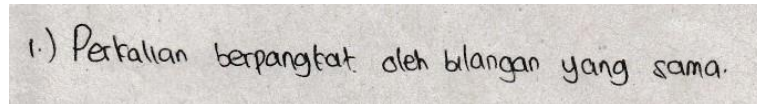 1.) Perkalian berpangkat oleh bilangan yang sama.